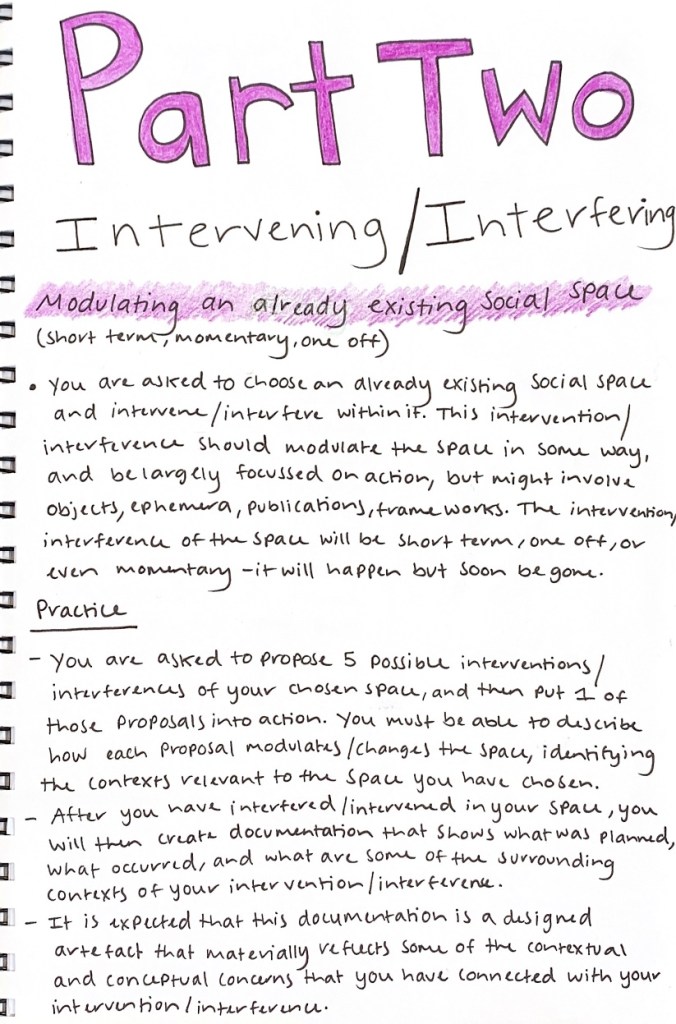 Part Two
Intervening/Interfering
Modulating an already existing social space
(short term, momentary, one off)
• You are asked to choose an already existing social space
and intervene/interfere within it. This intervention/
interference should modulate the space in some way,
and be largely focussed on action, but might involve
objects, ephemera, publications, frameworks. The intervention,
interference of the space will be short term, one off, or
even momentary - it will happen but soon be gone.
Practice
- You are asked to propose 5 possible interventions/
interferences of your chosen space, and then put 1 of
those proposals into action. You must be able to describe
how each proposal modulates/changes the space, identifying
the contexts relevant to the space you have chosen.
- After you have interfered/intervened in your space, you
will then create documentation that shows what was planned,
what occurred, and what are some of the surrounding
contexts of your intervention/interference.
- It is expected that this documentation is a designed
artefact that materially reflects some of the contextual
and conceptual concerns that you have connected with your
intervention/interference.